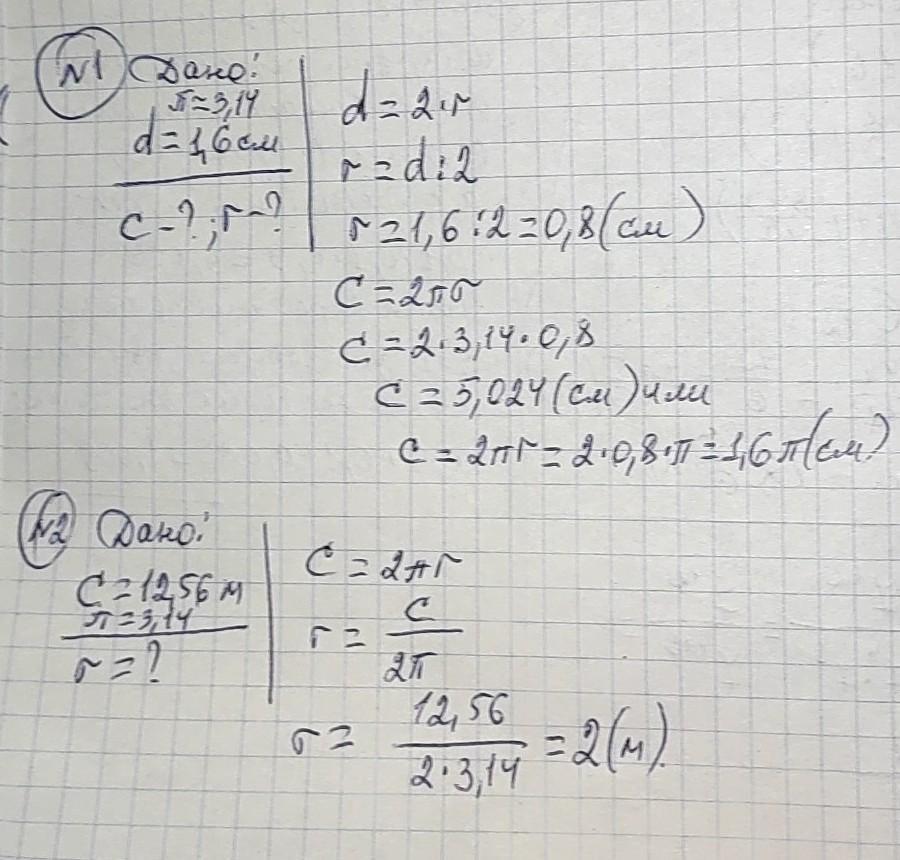 №1 Дано:
π=3,14
d=1,6 см
C-?; r-?
d=2·r
r=d:2
r=1,6:2=0,8(см)
C=2πr
C=2·3,14·0,8
C=5,024(см) или
C=2πr=2·0,8·π=1,6π(см)
№2 Дано:
C=12,56 м
π=3,14
r=?
C=2πr
r= C
2π
r= 12,56 =2(м).
2·3,14